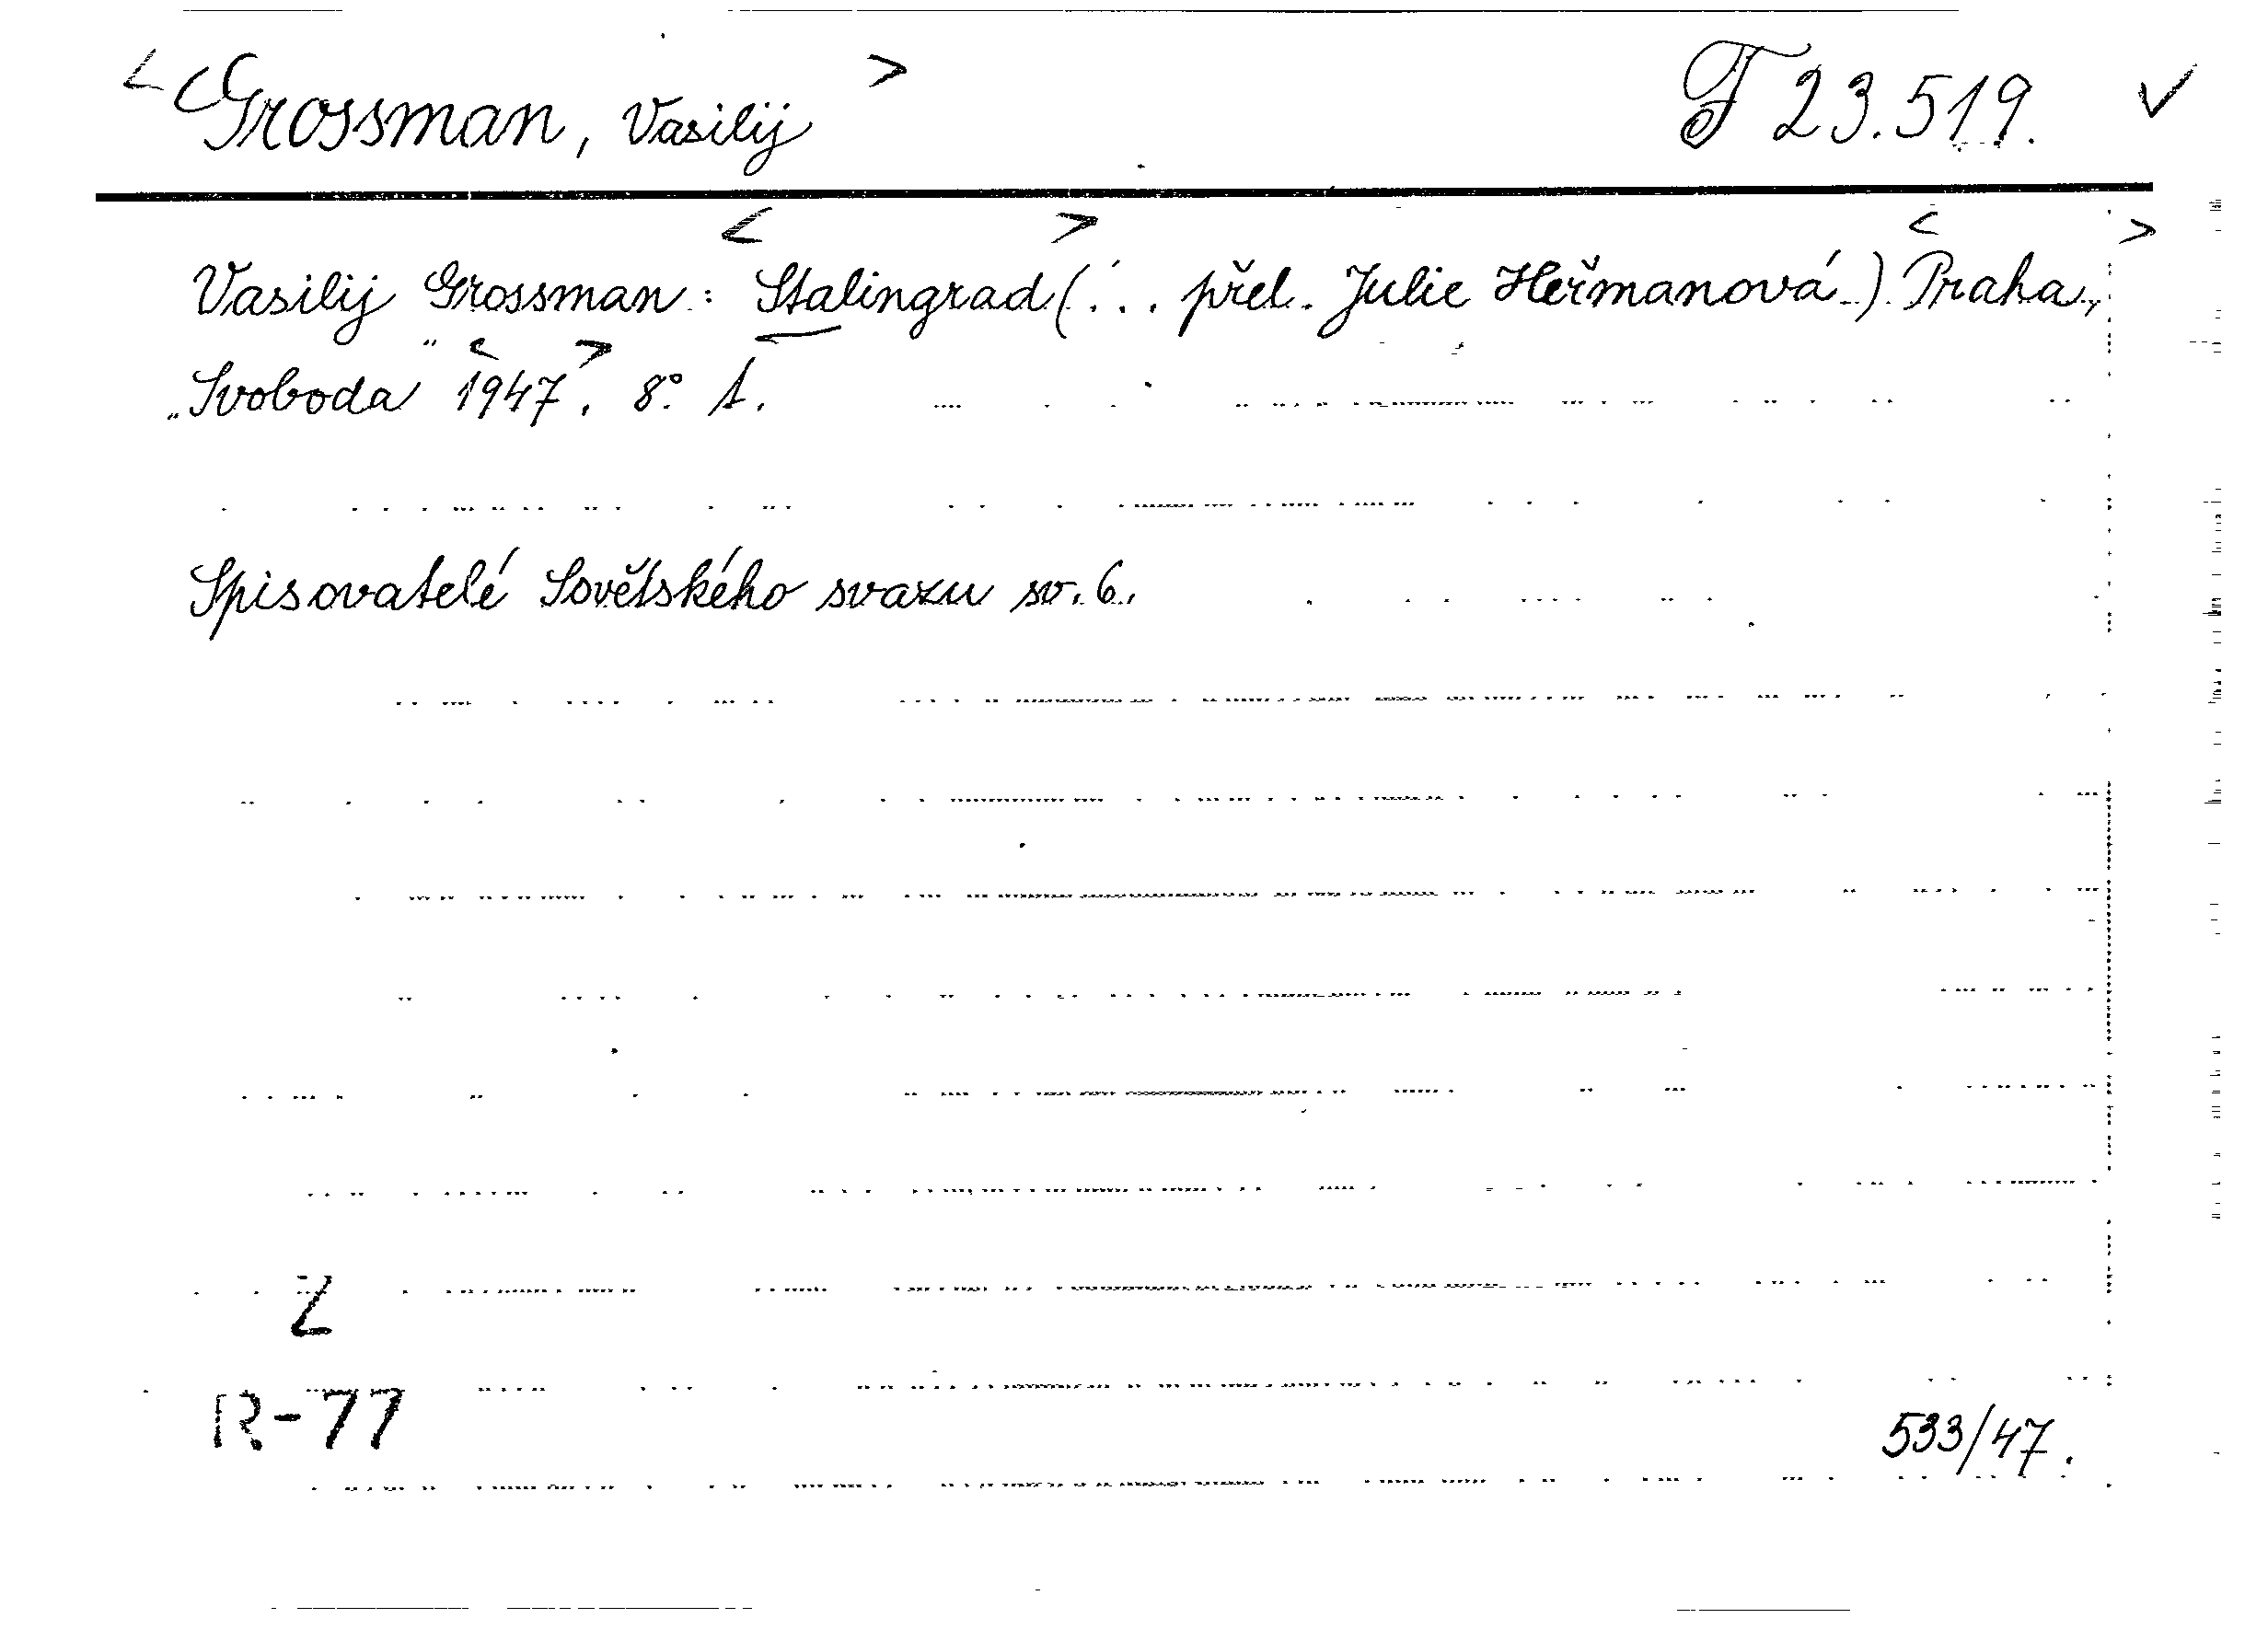 <Grossman, Vasilij> F 23.519. ✓
Vasilij Grossman: <Stalingrad> (... přel. Julie Heřmanová.) <Praha,>
„Svoboda“ <1947>. 8° 1.
Spisovatelé Sovětského svazu sv. 6.
Z
R-77
533/47.